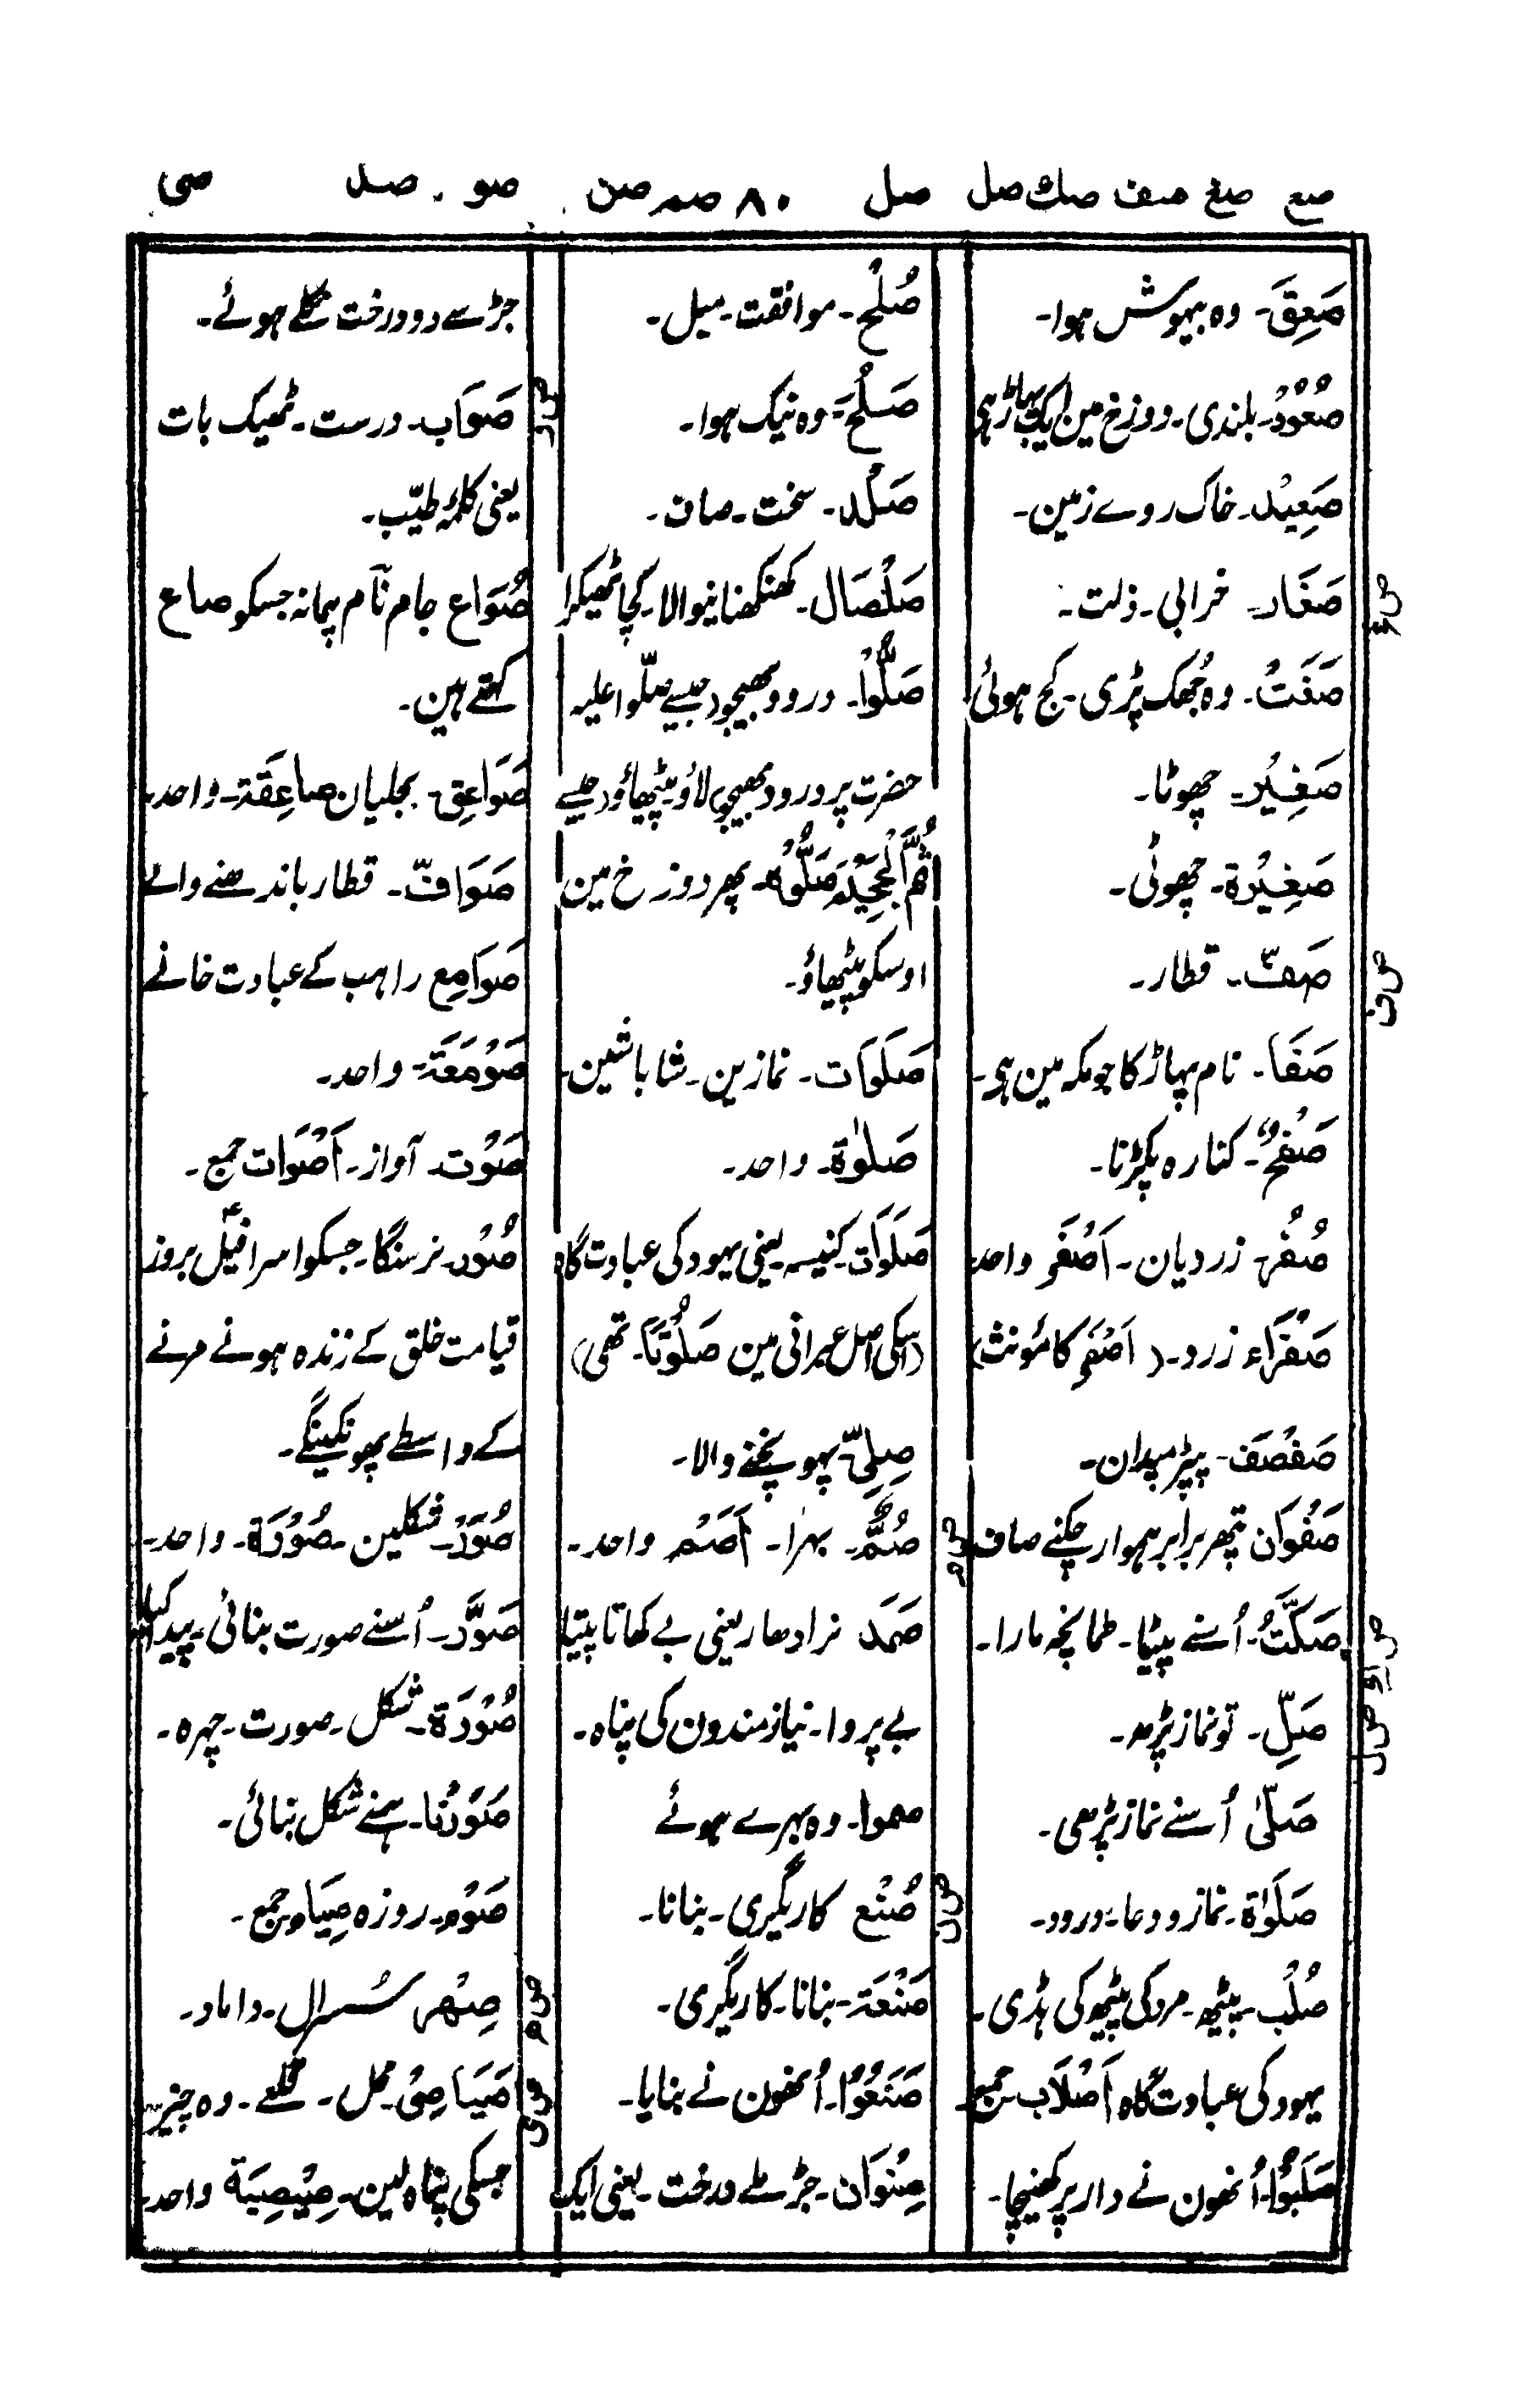 صع صغ صف صك صل صل ۸۰ صم صن صو . صہ صی
صَعِقَ۔ وہ بیہوش ہوا۔
صُعُوْدُ۔ بلندی۔ دوزخ مین ایک پہاڑ ہی
صَعِیْد۔ خاک روے زمین۔
صَغَار۔ خرابی۔ ذلت۔
ص غ
صَغَتْ۔ وہ جُھک پڑی۔ کج ہوئی
صَغِیْر۔ چھوٹا۔
صَغِیْرَة۔ چھوٹی۔
صَفّ۔ قطار۔
ص ف
صَفَا۔ نام پہاڑ کا جو مکہ مین ہی۔
صَفْحٌ۔ کنارہ پکڑنا۔
صُفْر زردیان۔ اَصْفَر واحد
صَفْرَاء زرد۔ (اَصْفَر کا مؤنث)
صَفْصَف۔ پٹپڑ میدان۔
صَفْوَان پتھر برابر ہموار چکنے صاف
صَکَّتْ۔ اُسنے پیٹا۔ طمانچہ مارا۔
ص ك
صَلِّ۔ تو نماز پڑھ۔
ص ل
صَلّٰی اُسنے نماز پڑھی۔
صَلَوٰة۔ نماز و دعا۔ درود۔
صُلْب۔ پیٹھ۔ مرد کی پیٹھ کی ہڈی۔
یہود کی عبادت گاہ اَصْلَاب جمع۔
صَلَبُوْا۔ اُنھون نے دار پر کھینچا۔
صُلْح۔ موافقت۔ میل۔
صَلَحَ۔ وہ نیک ہوا۔
صَلْد۔ سخت۔ صاف۔
صَلْصَال۔ کھنکھنانیوالا۔ کچا ٹھیکرا
صَلُّوْا۔ درود بھیجو جیسے صلّوا علیہ
حضرت پر درود بھیجو لاؤ بیٹھاؤ جیسے
ثُمَّ الْجَحِیْمَ صَلُّوْہُ۔ پھر دوزخ مین
اوسکو بیٹھاؤ۔
صَلَوَات۔ نمازین۔ شاباشین۔
صَلٰوة۔ واحد۔
صَلَوَات۔ کنیسہ یعنی یہود کی عبادت گاہ
(اسکی اصل عبرانی مین صَلُوْتَا۔ تھی)
صِلِیّ۔ پہونچنے والا۔
صُمٌّ۔ بہرا۔ اَصَمّ واحد۔
ص م
صَمَد نرادھار یعنی بے کھاتا پیتا
بے پروا۔ نیازمندون کی پناہ۔
صموا۔ وہ بہرے ہوئے
صُنْع کاریگری۔ بنانا۔
ص ن
صَنْعَة۔ بنانا۔ کاریگری۔
صَنَعُوْا۔ اُنھون نے بنایا۔
صِنْوَان۔ جڑ ملے درخت۔ یعنی ایک
جڑ سے دو درخت نکلے ہوئے۔
صَوَاب۔ درست۔ ٹھیک بات
ص و
یعنی کلمۂ طیّب۔
صُوَاع جام نام پیمانہ جسکو صاع
کہتے ہین۔
صَوَاعِق۔ بجلیان صاعِقَة۔ واحد۔
صَوَافّ۔ قطار باندھنے والے
صَوَامِع راہب کے عبادت خانے
صَوْمَعَة۔ واحد۔
صَوْت۔ آواز۔ اَصْوَات جمع۔
صُوْر۔ نرسنگا۔ جسکو اسرافیل بروز
قیامت خلق کے زندہ ہونے مرنے
کے واسطے پھونکینگے۔
صُوَرْ۔ شکلین۔ صُوْرَة۔ واحد۔
صَوَّرَ۔ اُسنے صورت بنائی۔ پیدا کیا
صُوْرَة۔ شکل۔ صورت۔ چہرہ۔
صَوَّرْنَا۔ ہمنے شکل بنائی۔
صَوْم۔ روزہ صِیَام جمع۔
صِهْر سُسرال۔ داماد۔
ص ہ
صَیَاصِیْ۔ محل۔ قلعے۔ وہ چیز
ص ی
جسکی پناہ لین۔ صِیْصِیَة واحد۔